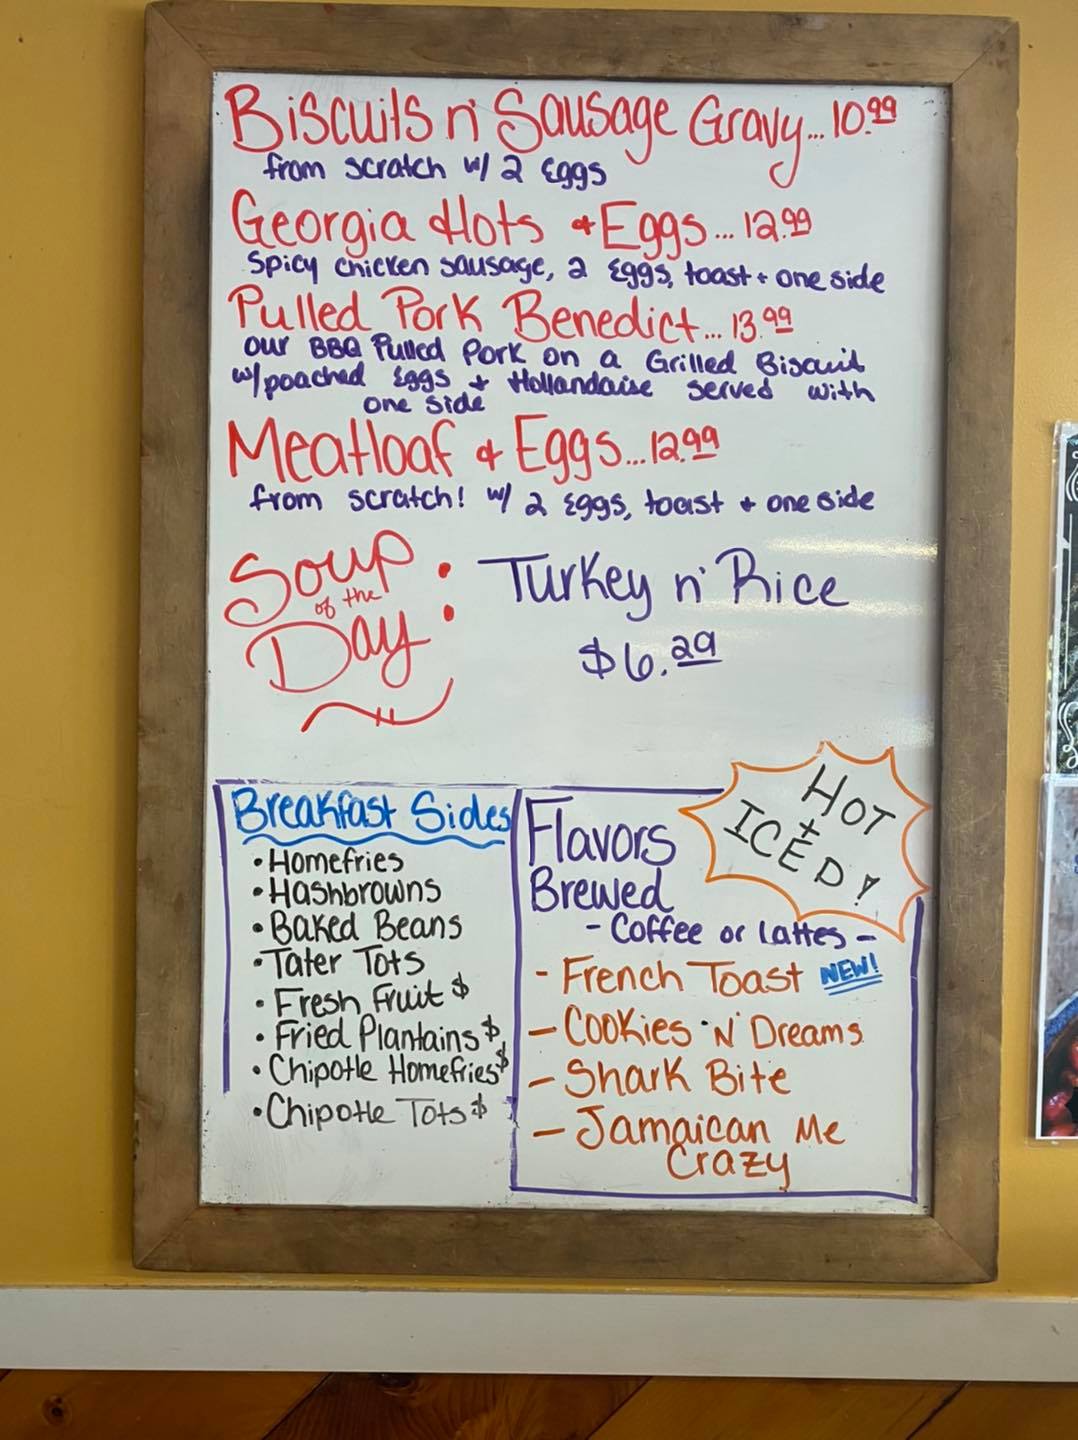 Biscuits n' Sausage Gravy... 10.99
from scratch w/ 2 Eggs
Georgia Hots + Eggs... 12.99
Spicy chicken sausage, 2 Eggs, toast + one side
Pulled Pork Benedict... 13.99
our BBQ Pulled Pork on a Grilled Biscuit
w/poached Eggs + Hollandaise served with
one side
Meatloaf + Eggs... 12.99
from scratch! w/ 2 Eggs, toast + one side
Soup of the Day:
Turkey n' Rice
$6.29
Breakfast Sides
• Homefries
• Hashbrowns
• Baked Beans
• Tater Tots
• Fresh Fruit $
• Fried Plantains $
• Chipotle Homefries $
• Chipotle Tots $
HOT
+
ICED!
Flavors
Brewed
- Coffee or Lattes -
- French Toast NEW!
- Cookies 'N' Dreams
- Shark Bite
- Jamaican Me
Crazy